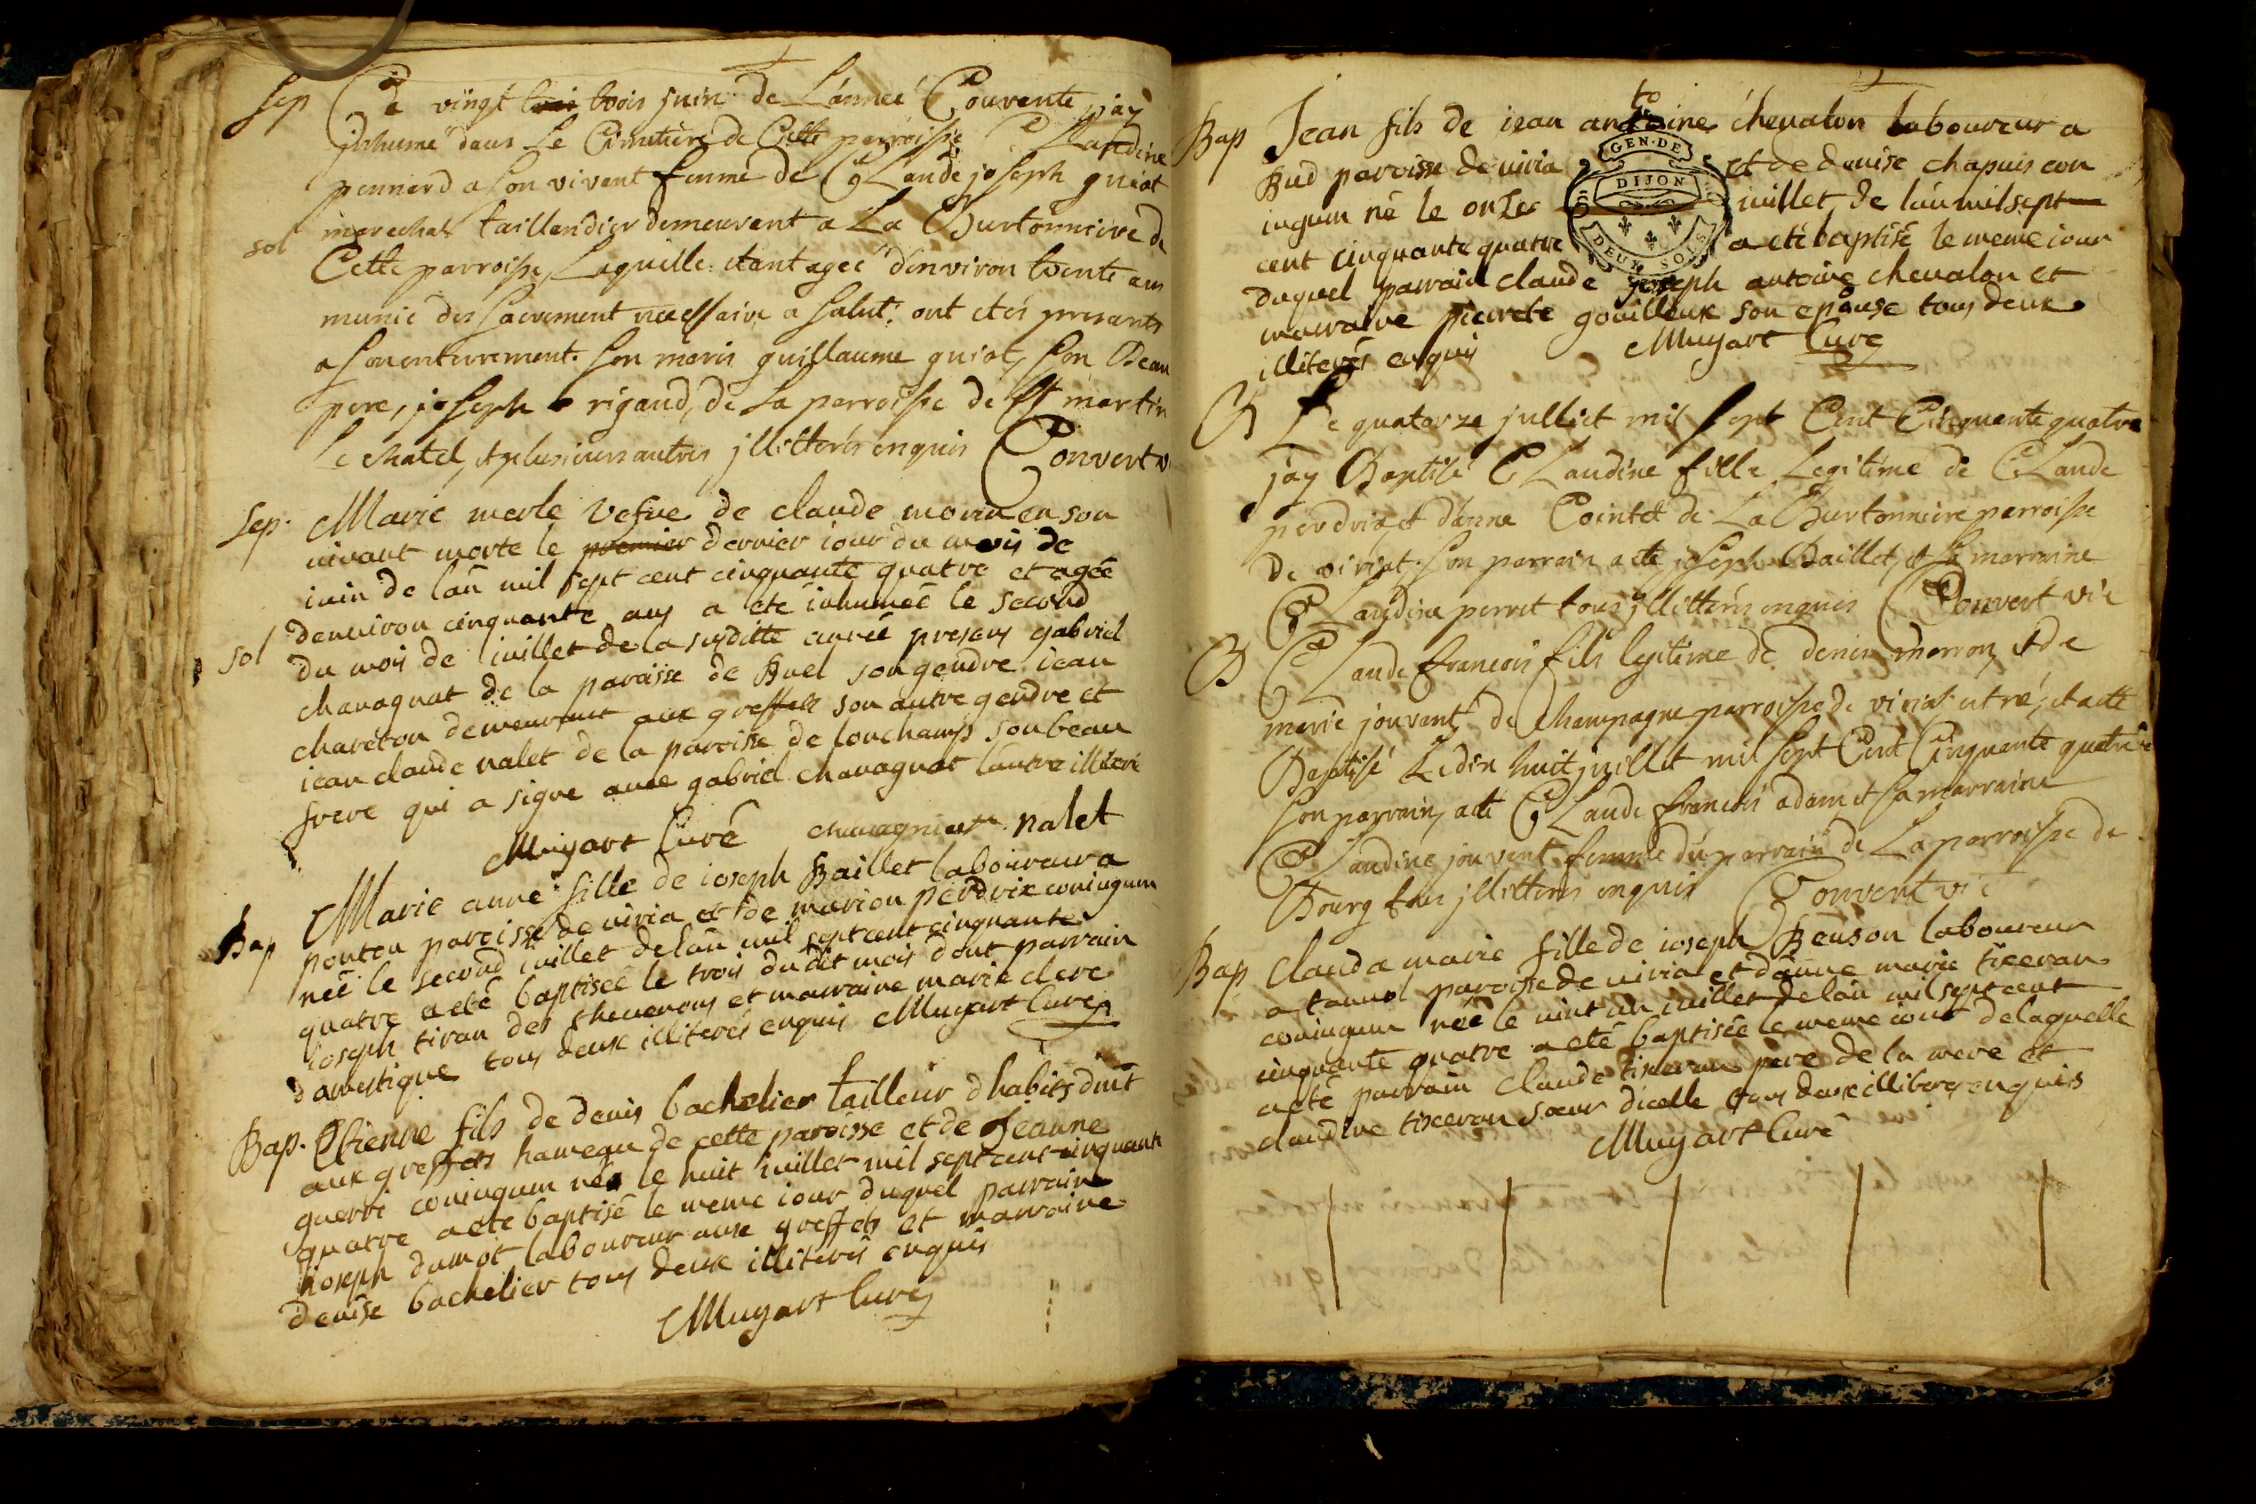 Sep Ce vingt trois juin de L'année Courente j'ay
jnhumé dans Le Cimetiere de Cette parroisse Claudine
pennerd a son vivent femme de Claude joseph guiot
sol marechal taillendier demeurent a La Burtonniere de
Cette parroisse, Laquelle etant ageé d'environ trente ans
munie des Sacrement necessaire a Salut: ont etés presents
a son enterrement. Son maris guillaume guiot, son Beau
pere, joseph rigaud, de La parroisse de St martin
Le chatel, et plusieurs autres jllitterés enquis Convert v
Sep. Marie merle vefve de claude morin en son
vivant morte le premier dernier iour du mois de
iuin de lan mil sept cent cinquante quatre et agée
denviron cinquante ans a eté inhumée le second
sol du mois de iuillet de la susditte année presens gabriel
chavagnat de la paroisse de Buel son gendre iean
chareton demeurant aux greffets son autre gendre et
iean claude nalet de la paroisse de lonchamps son beau
frere qui a signe avec gabriel chavagnat lautre illiteré
Muyart Curé chavagnat nalet
Bap Marie anne fille de ioseph Baillet laboureur a
ponteu paroisse de viria et de marion perdrix coniugum
née le second iuillet delan mil sept cent cinquante
quatre a eté baptisée le trois du dit mois dont parrain
ioseph tiran des chenerons et marraine marie clerc
domestique tous deux illiterés enquis Muyart Curé
Bap. Etienne fils de denis bachelier tailleur dhabits dmt
aux greffets hameau de cette paroisse et de Jeanne
querri coniugum né le huit iuillet mil sept cent cinquante
quatre a eté baptisé le meme iour duquel parrain
ioseph dumoit laboureur aux greffets et marraine
denise bachelier tous deux illiterés enquis
Muyart Curé
Bap Jean fils de iean antoine chevalon laboureur a
Bud paroisse de viria et de denise chapuis con
iugum né le onzee iuillet de lan mil sept
cent cinquante quatre a eté baptisé le meme iour
duquel parrain claude joseph antoine chevalon et
marraine pierrete gouilloux son epouse tous deux
illiterés enquis Muyart Curé
GEN. DE
DIJON
DEUX SOLS
B Le quatorze julliet mil sept Cent Cinquente quatre
j'ay Baptisé Claudine fille Legitime de Claude
perdrix et d'anne Cointet de La Burtonniere parroisse
de viriat. son parrain a eté joseph Baillet, et sa marraine
Claudine perret tous jllitterés enquis Convert vic
B Claude francois fils legitime de denis morron et de
marie jouvent de Champagne parroisse de viriat et né, et a eté
Baptisé Le dix huit juillet mil sept Cent Cinquente quatre
son parrain, a eté Claude francois adam et sa marraine
Claudine jouvent femme du parrain de La parroisse de
Bourg tous jllitterés enquis Convert vic
Bap Claudæ marie fille de ioseph Beuson laboureur
a tannol paroisse de viria et danne marie tixeran
coniugum née le vint un iuillet delan mil sept cent
cinquante quatre a eté baptisée le meme iour delaquelle
a eté parrain claude tixeran pere de la mere et
claudine tixeran sœur dicelle tous deux illiterés enquis
Muyart Curé